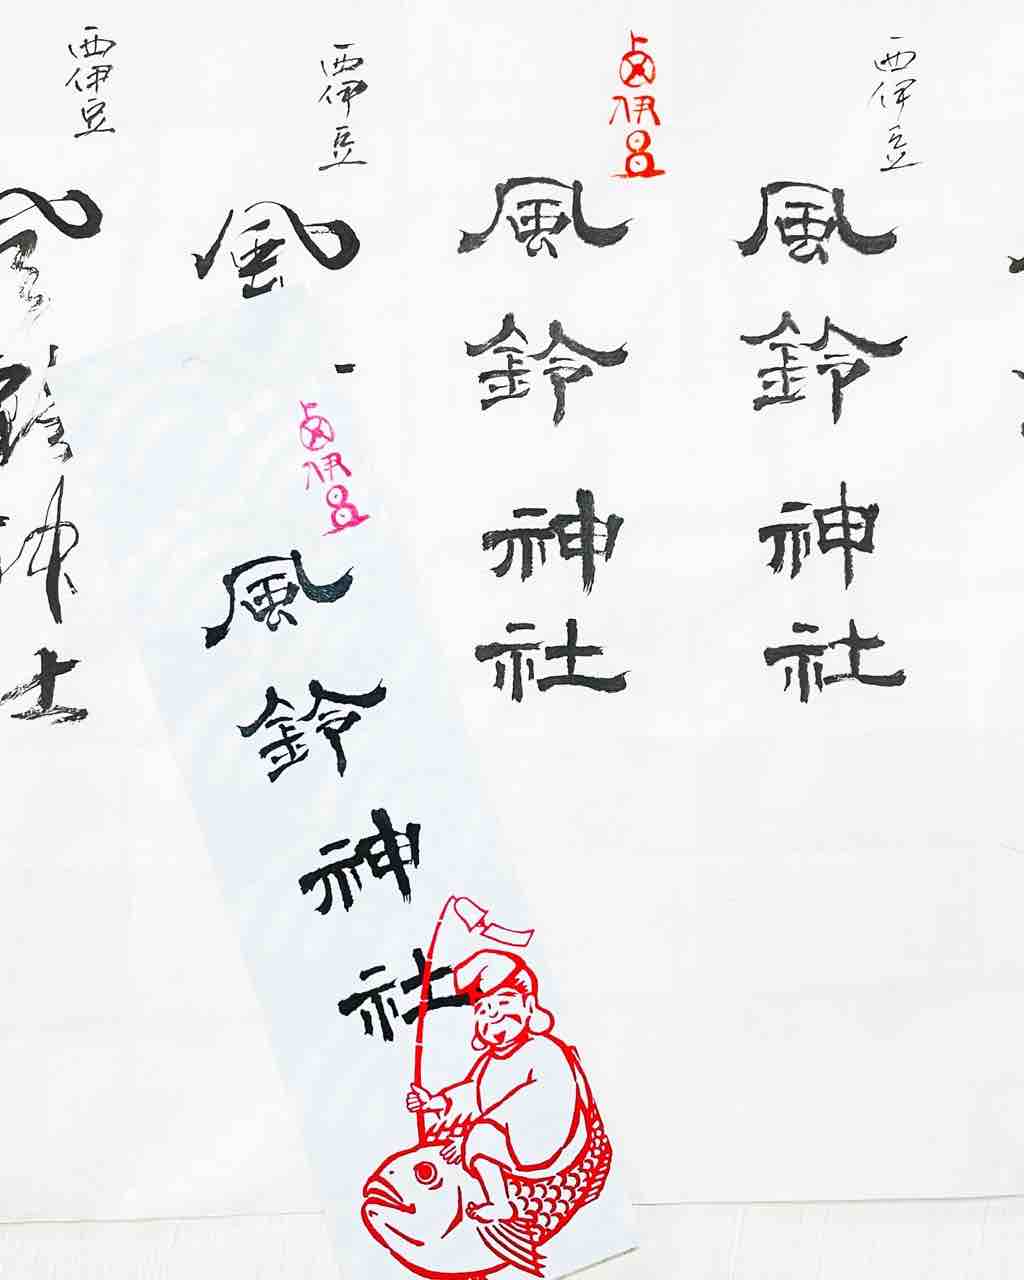 西伊豆
風鈴神社
西伊豆
風鈴神社
西伊豆
風
西伊豆
風鈴神社
西伊豆
風鈴神社